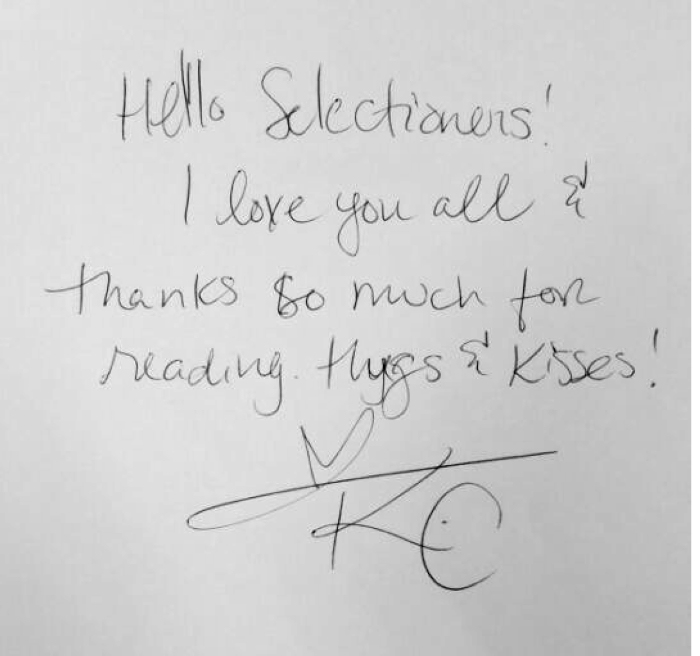 Hello Selectioners!
I love you all &
thanks so much for
reading. Hugs & Kisses!
KC